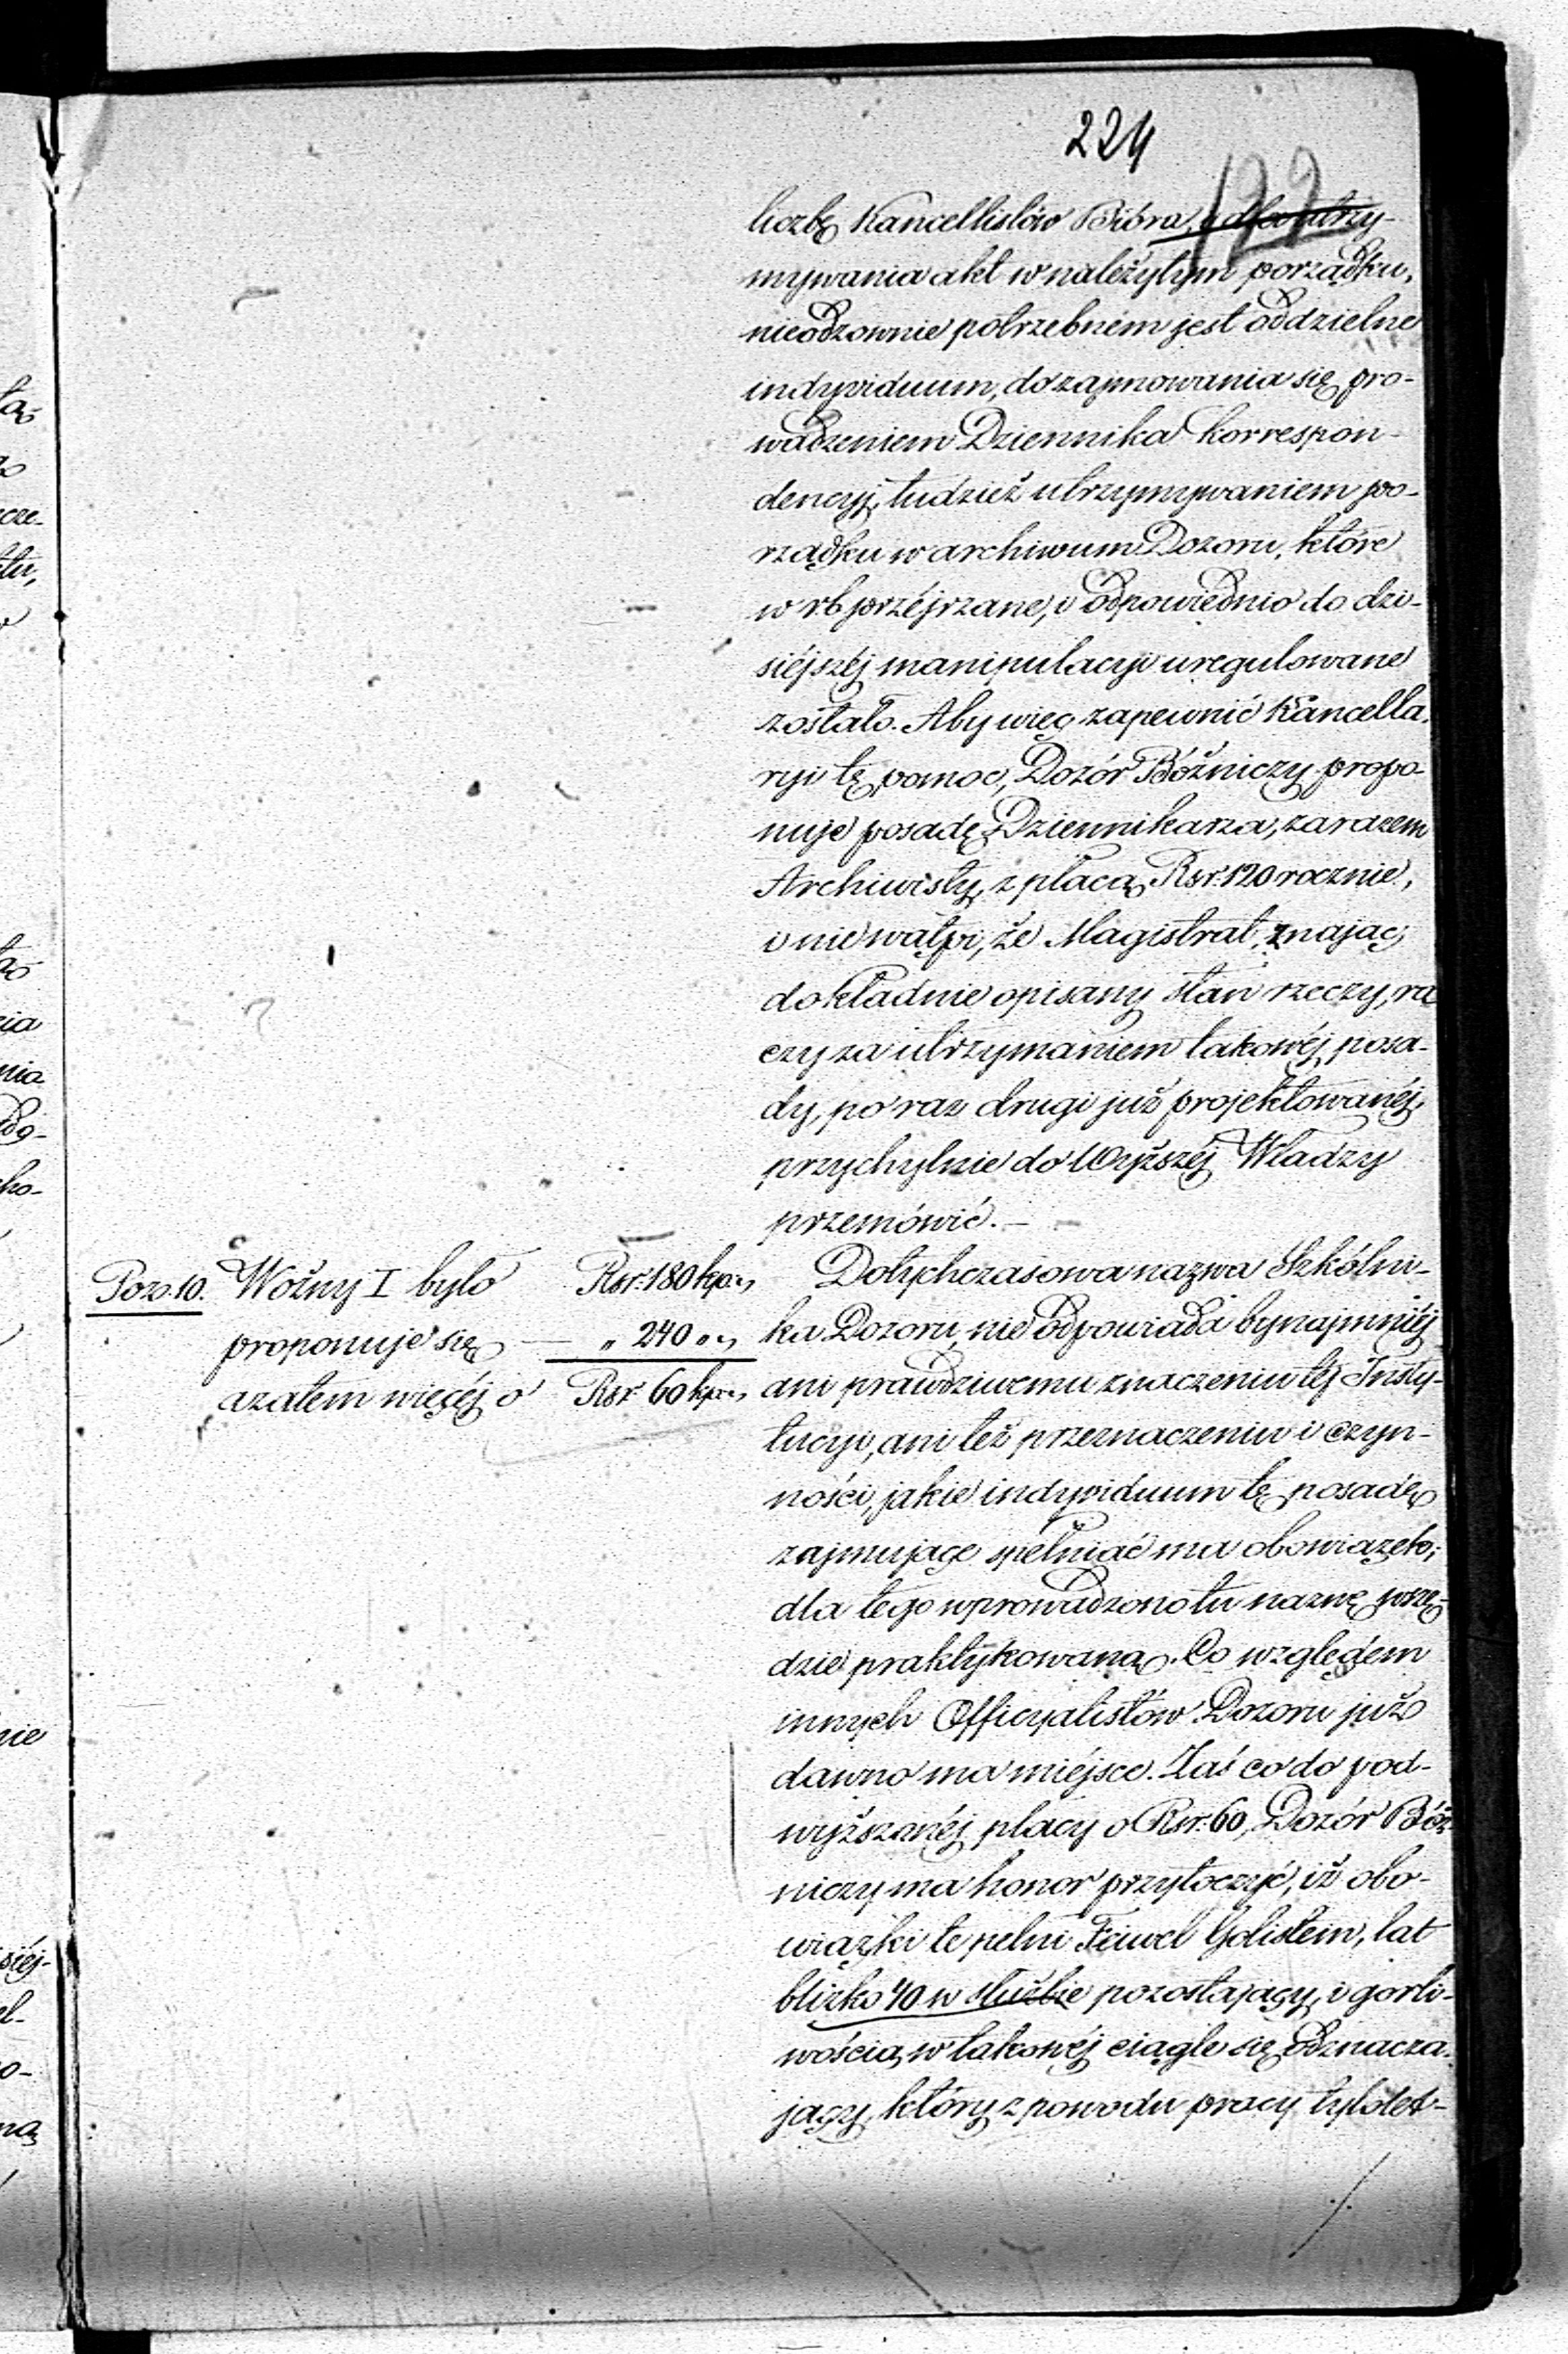 224
122
liczbę Kancellistów Bióra, a dla utrzy-
mywania akt w należytym porządku,
nieodzownie potrzebném jest oddzielne
indywiduum, do zajmowania się pro-
wadzeniem Dziennika korrespon-
dencyj, tudzież utrzymywaniem po-
rządku w archiwum Dozoru, które
w r.b przéjrzane, i odpowiednio do dzi-
siéjszéj manipulacyi uregulowane
zostało. Aby więc zapewnić Kancella-
ryi tę pomoc, Dozór Bóżniczy propo-
nuje posadę Dziennikarza, zarazem
Archiwisty, z płacą Rsr. 120 rocznie,
i nie wątpi, że Magistrat, znając
dokładnie opisany stan rzeczy, ra
czy za utrzymaniem takowéj posa-
dy, po raz drugi już projektowanéj,
przychylnie do Wyższéj Władzy
przemówić. —
Poz. 10. Woźny I było Rsr. 180 kp. „
proponuje się — „ 240 „ „
azatem więcéj o Rsr. 60 kp. „
Dotychczasowa nazwa Szkólni-
ka Dozoru, nie odpowiada bynajmniéj
ani prawdziwemu znaczeniu téj Insty-
tucyi, ani też przeznaczeniu i czyn-
ności, jakie indywiduum tę posadę
zajmujące spełniać ma obowiązek;
dla tego wprowadzono tu nazwę wszę-
dzie praktykowaną. Co względem
innych Officyalistów Dozoru już
dawno ma miéjsce. Zaś co do pod-
wyższonéj płacy o Rsr. 60, Dozór Bóż
niczy ma honor przytoczyć, iż obo-
wiązki te pełni Feiwel Golistein, lat
blizko 40 w służbie pozostający, i gorli-
wością w takowéj ciągle się odznacza-
jący, który z powodu pracy tylolet-
./.